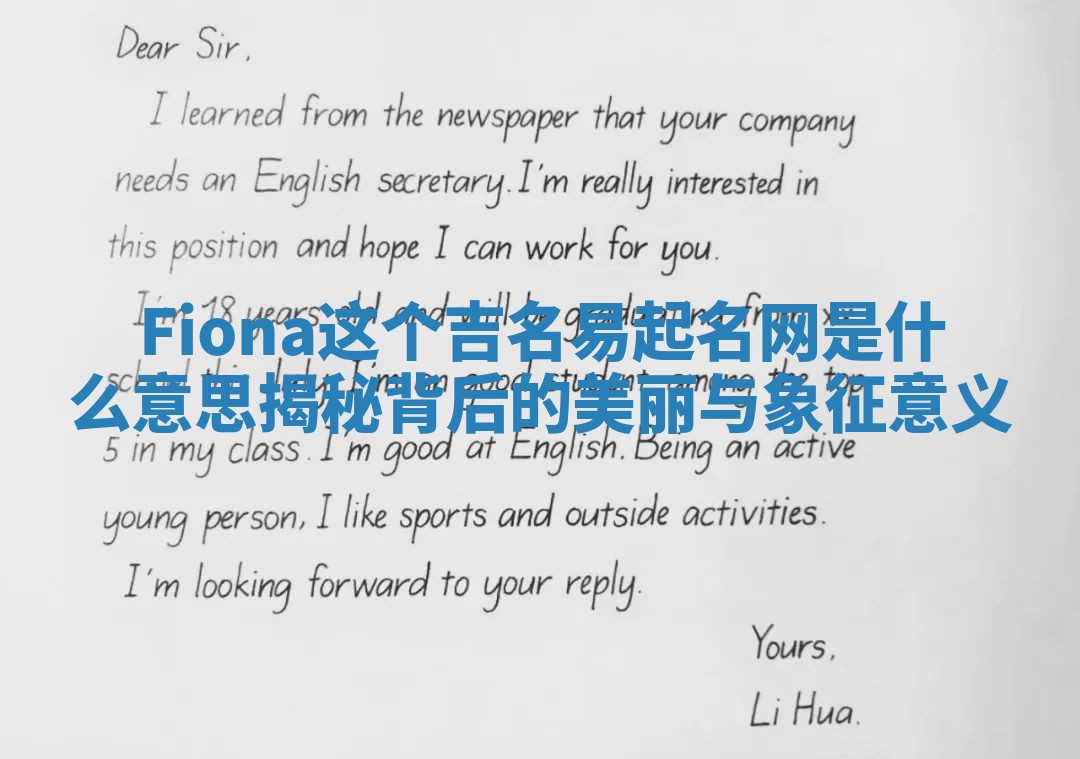 Dear Sir,
I learned from the newspaper that your company
needs an English secretary. I'm really interested in
this position and hope I can work for you.
I'm 18 years old and will be graduating from
Fiona这个吉名易起名网是什
school this July. I'm an good student among the top
么意思揭秘背后的美丽与象征意义
5 in my class. I'm good at English. Being an active
young person, I like sports and outside activities.
I'm looking forward to your reply.
Yours,
Li Hua.